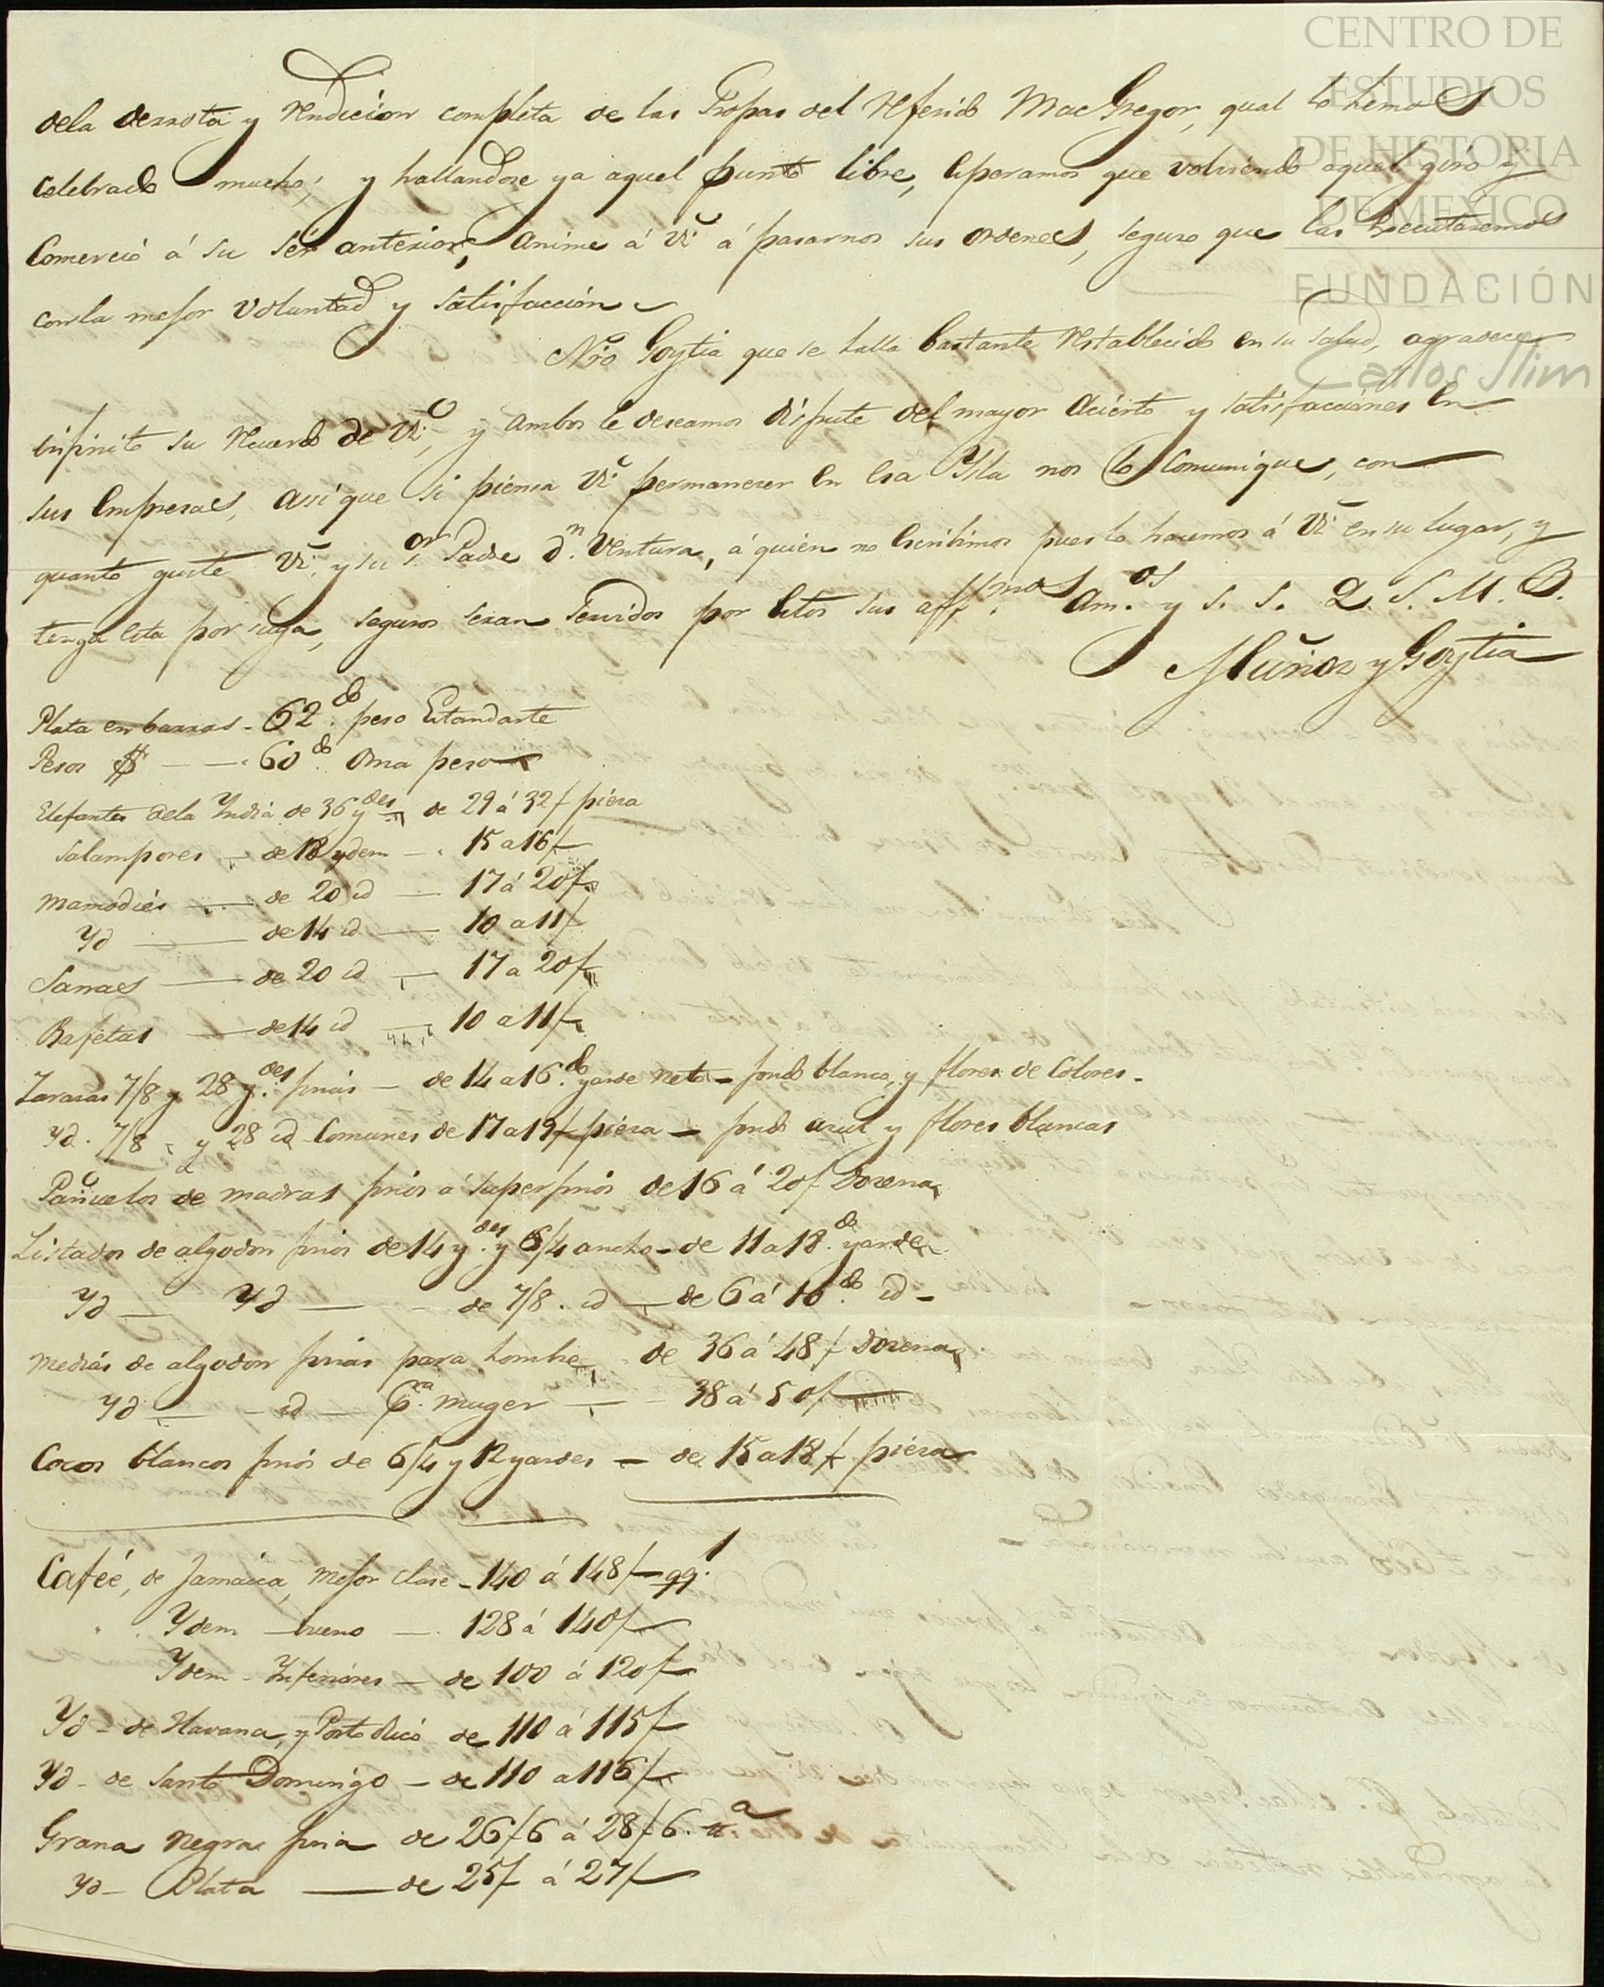 CENTRO DE
ESTUDIOS
DE HISTORIA
DE MEXICO
FUNDACIÓN
Carlos Slim
dela derrota y rendicion completa de las Tropas del referido MacGregor, qual lo hemos
celebrado mucho; y hallandose ya aquel punto libre, esperamos que volviendo aquel giro y
Comercio á su sér anterior, anime á Vm̃ á pasarnos sus ordenes, seguro que las executaremos
con la mejor voluntad y satisfaccion
Nr̃o Goytia que se halla bastante restablecido en su salud, agradece
infinito su recuerdo de Vm̃, y ambos le deseamos disfrute del mayor acierto y satisfacciones en
sus empresas, assi que si piensa Vm̃ permanecer en esa Ysla nos lo comunique, con
quanto guste Vm̃ y su S.or Padre D.n Ventura, á quien no escribimos pues lo hacemos á Vm̃ en su lugar, y
tenga esta por suya, seguros seran servidos por estos sus aff.mos Am.os y S. S. Q. S. M. B.
Muñoz y Goytia
Plata en barras - 62 d.s peso Estandarte
Pesos $ - 60 d.s Onza peso
Elefantes dela Yndia de 36 y.des de 29 á 32/ pieza
Salampores - de 18 ydem - 15 a 16/
Mamodies - de 20 id - 17 á 20/
Yd - de 14 id - 10 a 11/
Sanaes - de 20 id - 17 a 20/
Bafetas - de 14 id - 10 a 11/
Zarasas 7/8 y 28 y.des finas - de 14 a 16 d.s yarde neto - fondo blanco, y flores de Colores -
Yd. 7/8 - y 28 id Comunes de 17 a 19/ pieza - fondo azul y flores blancas
Pañuelos de madras finos á superfinos de 16 á 20/ Dozena
Listados de algodon finos de 14 y.des y 6/4 ancho - de 11 a 18 d.s yarde
Yd - Yd - de 7/8. id - de 6 á 16 d.s id -
Medias de algodon finas para hombre - de 36 á 48/ Dozena
Yd - id - P.a muger - 38 á 50/
Cocos blancos finos de 6/4 y 12 yardes - de 15 a 18/ pieza
Cafeé, de Jamaica, Mejor clase - 140 á 148/ qq.l
Ydem bueno - 128 á 140/
Ydem - Inferiores - de 100 á 120/
Yd - de Havana, y Porto Rico de 110 á 115/
Yd - de Santo Domingo - de 110 a 116/
Grana negra fina de 26/6 á 28/6.
Yd - Plata - de 25/ á 27/